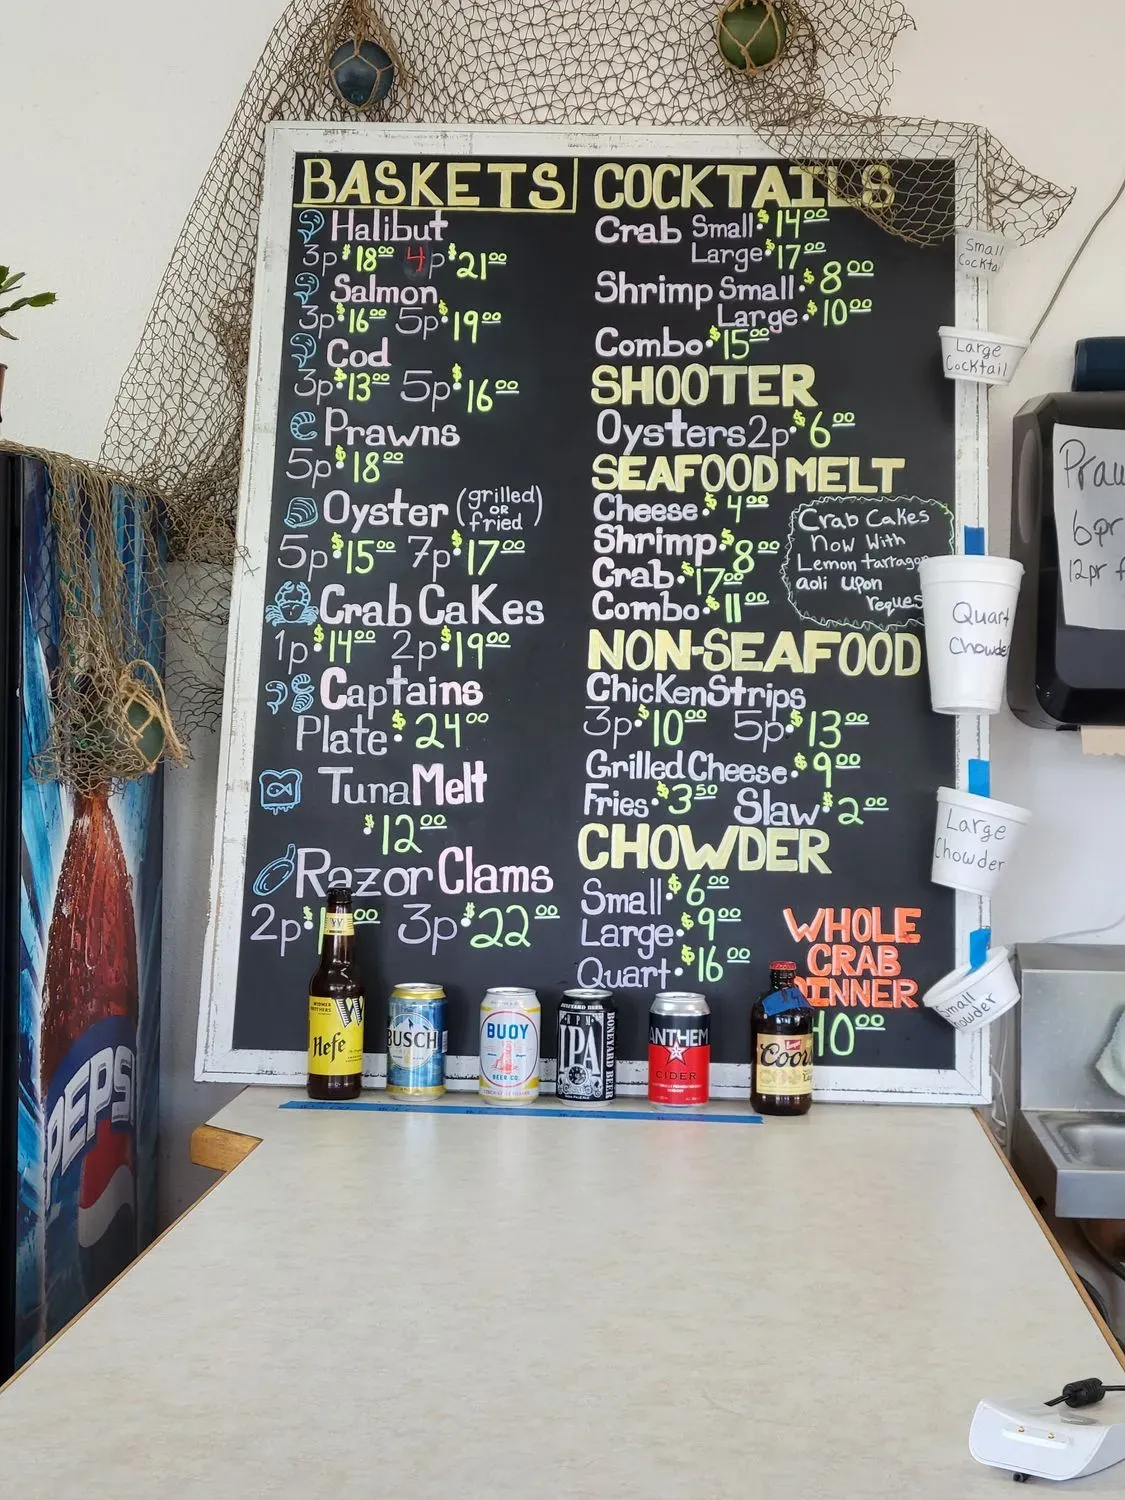 BASKETS
Halibut
3p $18⁰⁰ 4p $21⁰⁰
Salmon
3p $16⁰⁰ 5p $19⁰⁰
Cod
3p $13⁰⁰ 5p $16⁰⁰
Prawns
5p $18⁰⁰
Oyster (grilled OR fried)
5p $15⁰⁰ 7p $17⁰⁰
Crab Cakes
1p $14⁰⁰ 2p $19⁰⁰
Captains
Plate $24⁰⁰
Tuna Melt
$12⁰⁰
Razor Clams
2p $1 ⁰⁰ 3p $22⁰⁰
COCKTAILS
Crab Small $14⁰⁰
Large $17⁰⁰
Shrimp Small $8⁰⁰
Large $10⁰⁰
Combo $15⁰⁰
SHOOTER
Oysters 2p $6⁰⁰
SEAFOOD MELT
Cheese $4⁰⁰
Shrimp $8⁰⁰
Crab $17⁰⁰
Combo $11⁰⁰
Crab Cakes
Now With
Lemon tarragon
aoli upon
reques
NON-SEAFOOD
Chicken Strips
3p $10⁰⁰ 5p $13⁰⁰
Grilled Cheese $9⁰⁰
Fries $3⁵⁰ Slaw $2⁰⁰
CHOWDER
Small $6⁰⁰
Large $9⁰⁰
Quart $16⁰⁰
WHOLE
CRAB
DINNER
40⁰⁰
Small
Cockta
Large
Cocktail
Quart
Chowder
Large
Chowder
Small
Chowder
Praw
6pr
12pr f
PEPSI
W
WIDMER
BROTHERS
W
Hefe
BUSCH
BUOY
BEER CO
IPA
BONEYARD BEER
ANTHEM
CIDER
Coors